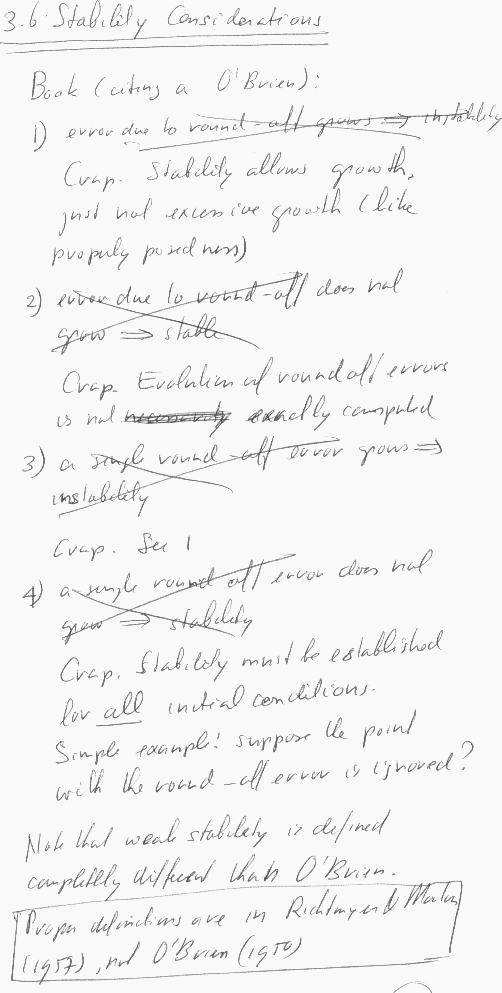 3.6 Stability Considerations
Book (citing a O'Brien):
1) error due to round-off grows ⇒ instability
Crap. Stability allows growth,
just not excessive growth (like
properly posedness)
2) error due to round-off does not
grow ⇒ stable
Crap. Evolution of round off errors
is not necessarily exactly computed
3) a single round-off error grows ⇒
instability
Crap. See 1
4) a single round off error does not
grow ⇒ stability
Crap. Stability must be established
for all initial conditions.
Simple example: suppose the point
with the round-off error is ignored?
Note that weak stability is defined
completely different than O'Brien.
Proper definitions are in Richtmyer & Morton
(1957), not O'Brien (1950)